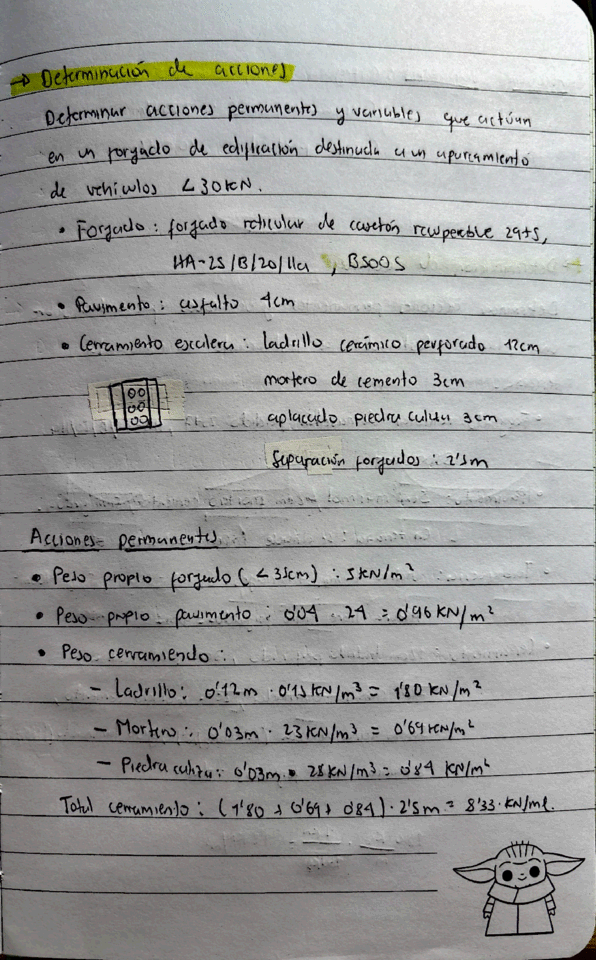 → Determinación de acciones
Determinar acciones permanentes y variables que actúan
en un forjado de edificación destinada a un aparcamiento
de vehiculos < 30 KN.
• Forjado: forjado reticular de casetón recuperable 29+5,
HA-25/B/20/IIa, B500S
• Pavimento: asfalto 4cm
• Cerramiento escalera: ladrillo cerámico perforado 12cm
mortero de cemento 3cm
aplacado piedra caliza 3cm
Separación forjados: 2'5m
Acciones permanentes:
• Peso propio forjado (<35cm): 5KN/m²
• Peso propio pavimento: 0'04 · 24 = 0'96 KN/m²
• Peso cerramiendo:
- Ladrillo: 0'12m · 0'15 KN/m³ = 1'80 KN/m²
- Mortero: 0'03m · 23 KN/m³ = 0'69 KN/m²
- Piedra caliza: 0'03m • 28 KN/m³ = 0'84 KN/m²
Total cerramiento: (1'80 + 0'69 + 0'84) · 2'5m = 8'33 · KN/ml.